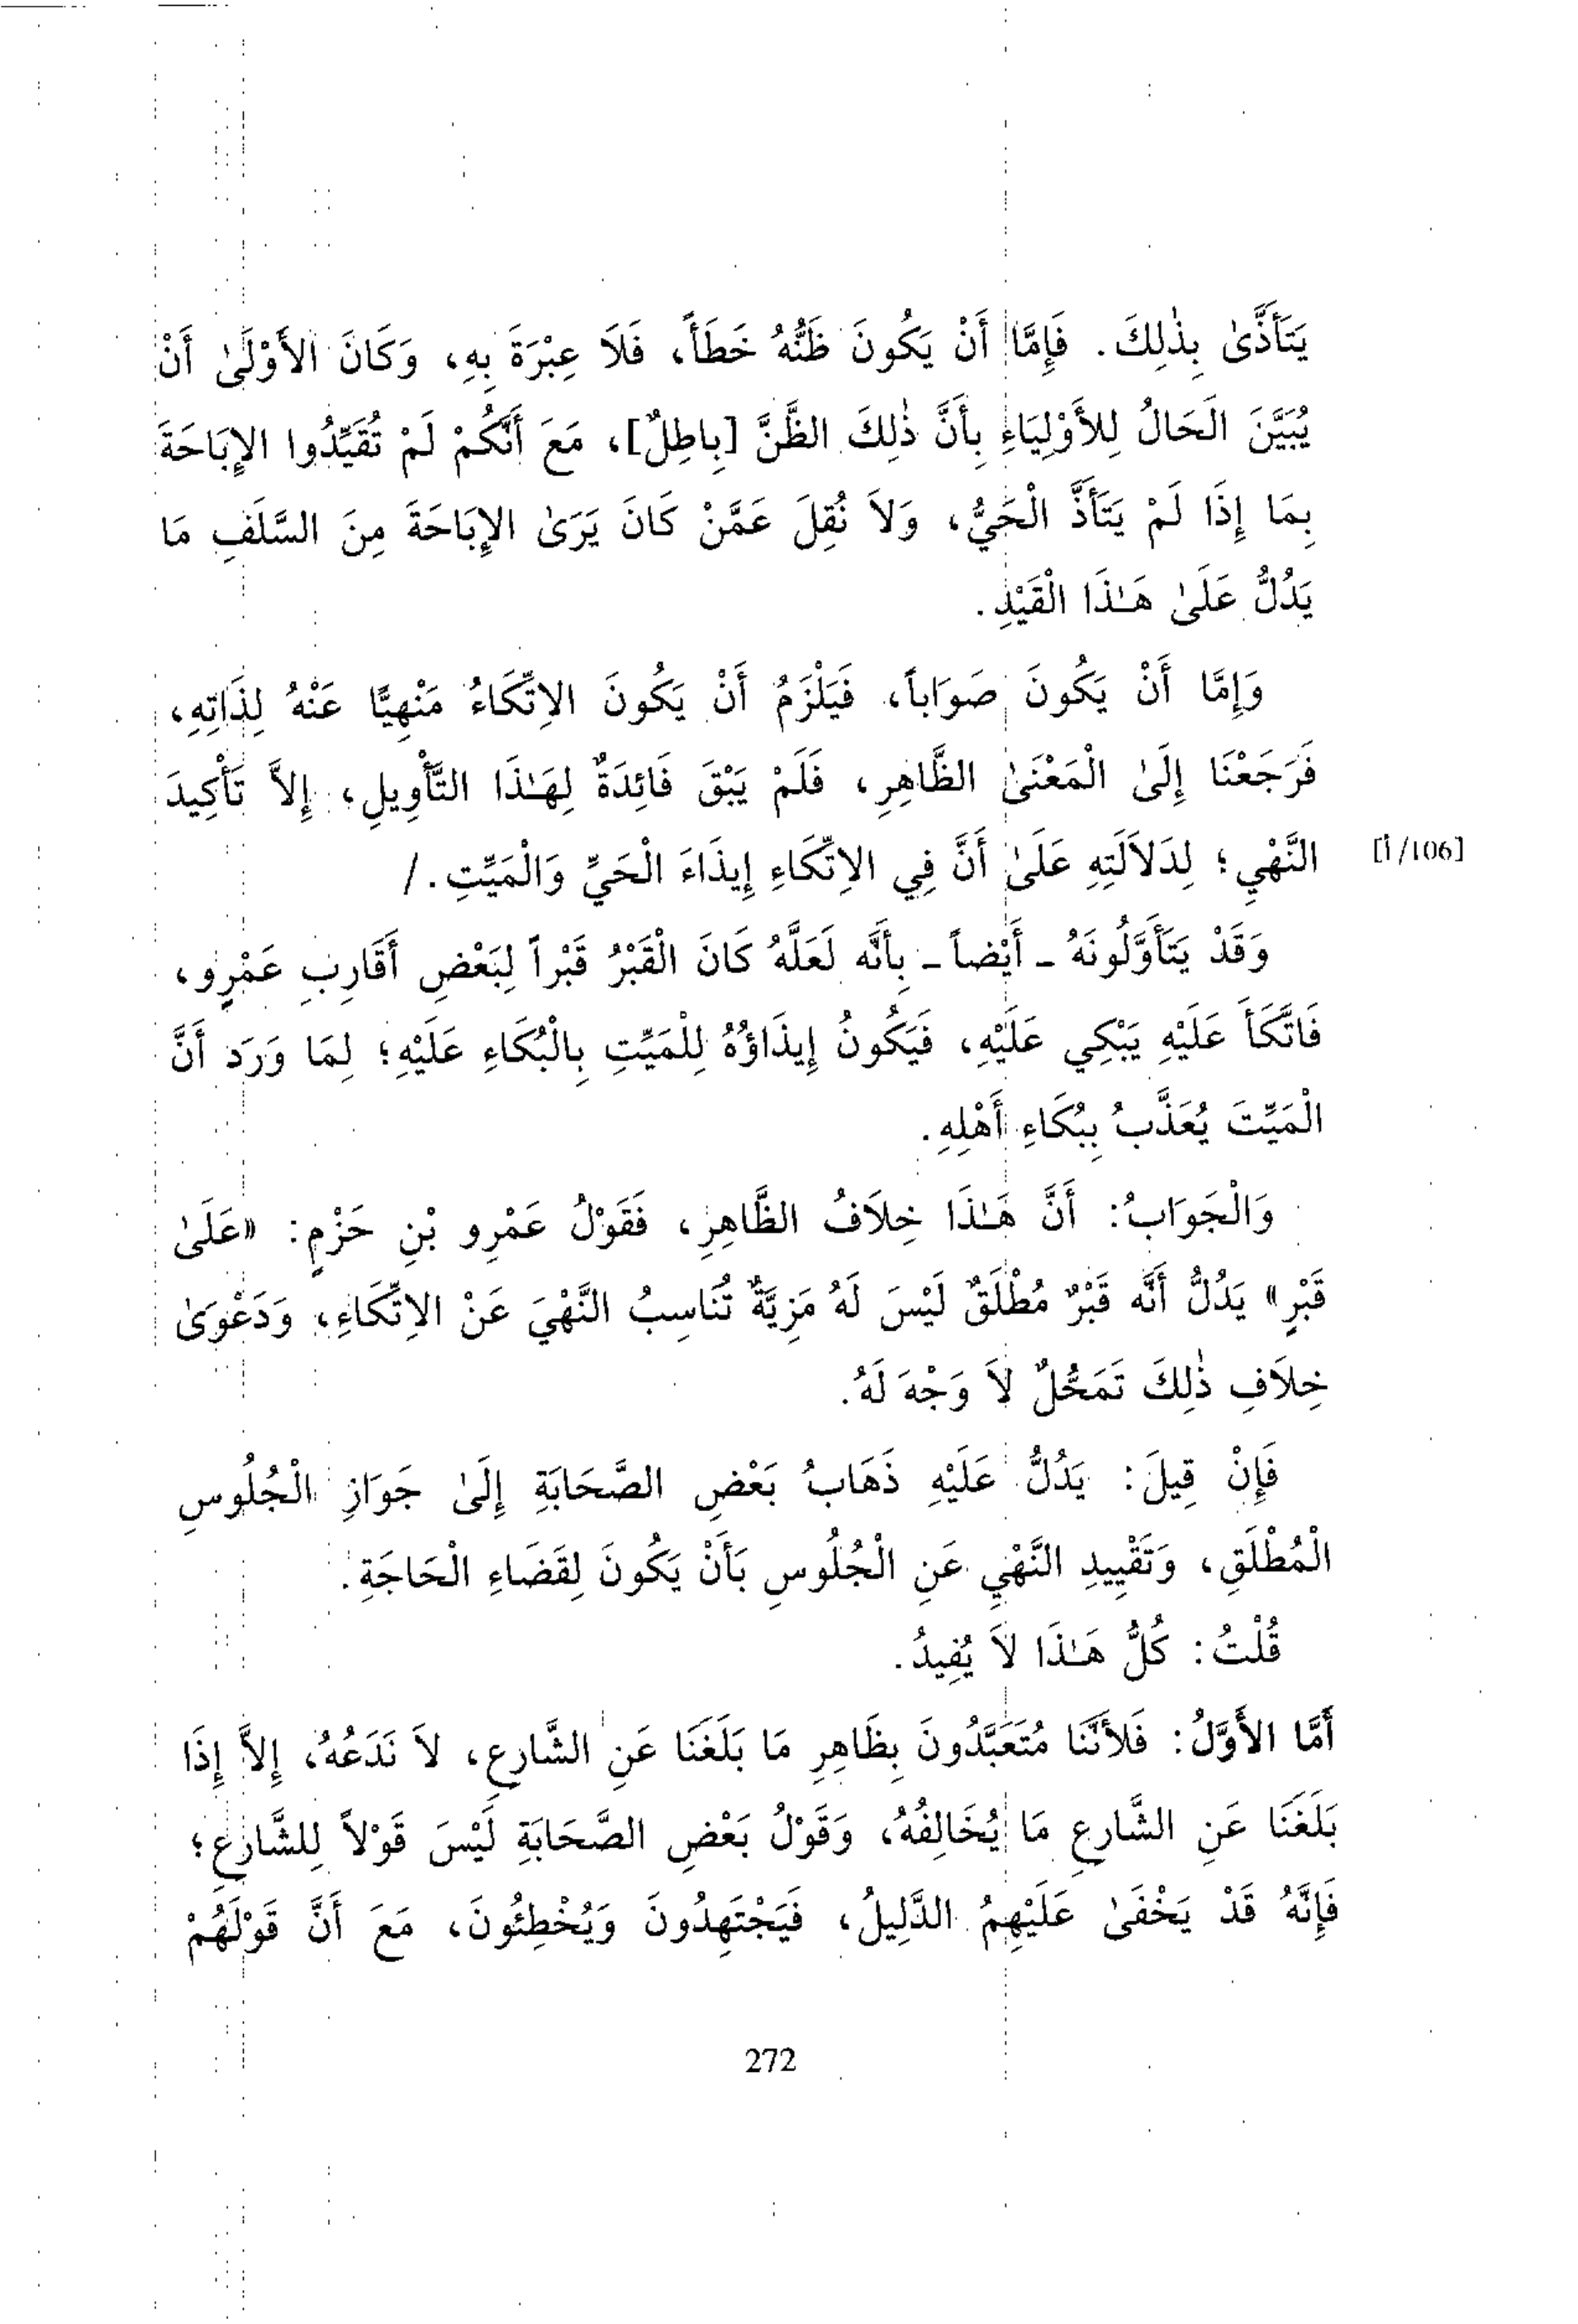 يَتَأَذَّىٰ بِذٰلِكَ. فَإِمَّا أَنْ يَكُونَ ظَنُّهُ خَطَأً، فَلاَ عِبْرَةَ بِهِ، وَكَانَ الأَوْلَىٰ أَنْ
يُبَيَّنَ الَحَالُ لِلأَوْلِيَاءِ بِأَنَّ ذٰلِكَ الظَّنَّ [بِاطِلٌ]، مَعَ أَنَّكُمْ لَمْ تُقَيِّدُوا الإِبَاحَةَ
بِمَا إِذَا لَمْ يَتَأَذَّ الْحَيُّ، وَلاَ نُقِلَ عَمَّنْ كَانَ يَرَىٰ الإِبَاحَةَ مِنَ السَّلَفِ مَا
يَدُلُّ عَلَىٰ هَـٰذَا الْقَيْدِ.
وَإِمَّا أَنْ يَكُونَ صَوَاباً، فَيَلْزَمُ أَنْ يَكُونَ الاِتِّكَاءُ مَنْهِيًّا عَنْهُ لِذَاتِهِ،
فَرَجَعْنَا إِلَىٰ الْمَعْنَىٰ الظَّاهِرِ، فَلَمْ يَبْقَ فَائِدَةٌ لِهَـٰذَا التَّأْوِيلِ، إِلاَّ تَأْكِيدَ
النَّهْيِ؛ لِدَلاَلَتِهِ عَلَىٰ أَنَّ فِي الاِتِّكَاءِ إِيذَاءَ الْحَيِّ وَالْمَيِّتِ. / [106/أ]
وَقَدْ يَتَأَوَّلُونَهُ - أَيْضاً - بِأَنَّه لَعَلَّهُ كَانَ الْقَبْرُ قَبْراً لِبَعْضِ أَقَارِبِ عَمْرٍو،
فَاتَّكَأَ عَلَيْهِ يَبْكِي عَلَيْهِ، فَيَكُونُ إِيذَاؤُهُ لِلْمَيِّتِ بِالْبُكَاءِ عَلَيْهِ؛ لِمَا وَرَدَ أَنَّ
الْمَيِّتَ يُعَذَّبُ بِبُكَاءِ أَهْلِهِ.
وَالْجَوَابُ: أَنَّ هَـٰذَا خِلاَفُ الظَّاهِرِ، فَقَوْلُ عَمْرِو بْنِ حَزْمٍ: «عَلَىٰ
قَبْرٍ» يَدُلُّ أَنَّه قَبْرٌ مُطْلَقٌ لَيْسَ لَهُ مَزِيَّةٌ تُنَاسِبُ النَّهْيَ عَنْ الاِتِّكَاءِ، وَدَعْوَىٰ
خِلاَفِ ذٰلِكَ تَمَحُّلٌ لاَ وَجْهَ لَهُ.
فَإِنْ قِيلَ: يَدُلُّ عَلَيْهِ ذَهَابُ بَعْضِ الصَّحَابَةِ إِلَىٰ جَوَازِ الْجُلُوسِ
الْمُطْلَقِ، وَتَقْيِيدِ النَّهْيِ عَنِ الْجُلُوسِ بَأَنْ يَكُونَ لِقَضَاءِ الْحَاجَةِ.
قُلْتُ: كُلُّ هَـٰذَا لاَ يُفِيدُ.
أَمَّا الأَوَّلُ: فَلأَنَّنَا مُتَعَبَّدُونَ بِظَاهِرِ مَا بَلَغَنَا عَنِ الشَّارِعِ، لاَ نَدَعُهُ، إِلاَّ إِذَا
بَلَغَنَا عَنِ الشَّارِعِ مَا يُخَالِفُهُ، وَقَوْلُ بَعْضِ الصَّحَابَةِ لَيْسَ قَوْلاً لِلشَّارِعِ؛
فَإِنَّهُ قَدْ يَخْفَىٰ عَلَيْهِمُ الدَّلِيلُ، فَيَجْتَهِدُونَ وَيُخْطِئُونَ، مَعَ أَنَّ قَوْلَهُمْ
272